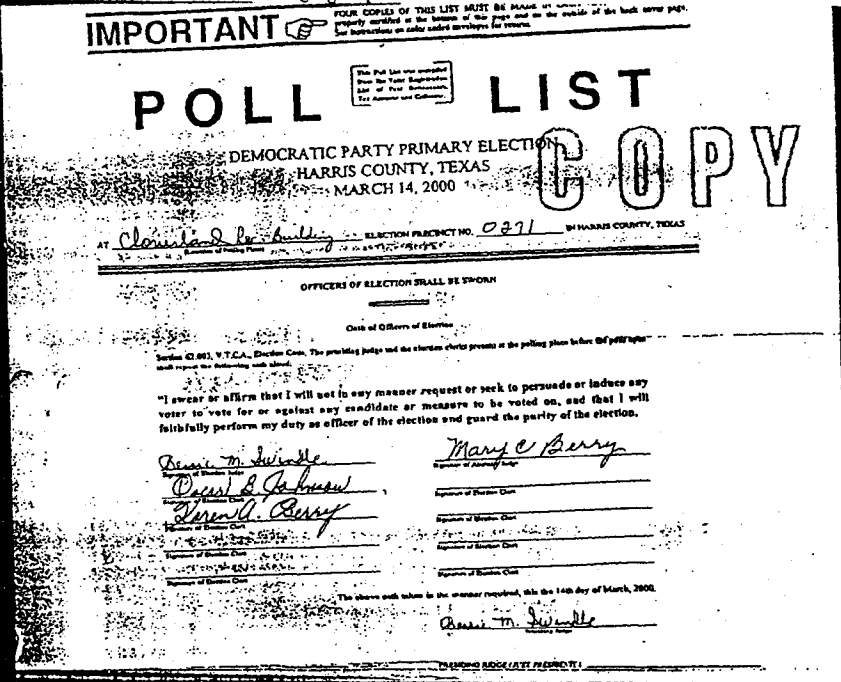 IMPORTANT
FOUR COPIES OF THIS LIST MUST BE MADE
properly certified at the bottom of this page and on the outside of the back cover page.
See instructions on color coded envelopes for returns.
POLL LIST
This Poll List was compiled
from the Voter Registration
List of Paul Bettencourt,
Tax Assessor and Collector.
COPY
DEMOCRATIC PARTY PRIMARY ELECTION
HARRIS COUNTY, TEXAS
MARCH 14, 2000
AT Building ELECTION PRECINCT NO. 0271 IN HARRIS COUNTY, TEXAS
(Location of Polling Place)
OFFICERS OF ELECTION SHALL BE SWORN
Oath of Officers of Election
Section 62.003, V.T.C.A., Election Code, The presiding judge and the election clerks present at the polling place before the polls open
shall repeat the following oath aloud:
"I swear or affirm that I will not in any manner request or seek to persuade or induce any
voter to vote for or against any candidate or measure to be voted on, and that I will
faithfully perform my duty as officer of the election and guard the purity of the election.
Bessie M. Swindle Mary C Berry
Signature of Election Judge Signature of Alternate Judge
Oscar B. Johnson
Signature of Election Clerk Signature of Election Clerk
Karen A. Berry
Signature of Election Clerk Signature of Election Clerk
Signature of Election Clerk Signature of Election Clerk
Signature of Election Clerk Signature of Election Clerk
The above oath taken in the manner required, this the 14th day of March, 2000.
Bessie M. Swindle
Presiding Judge